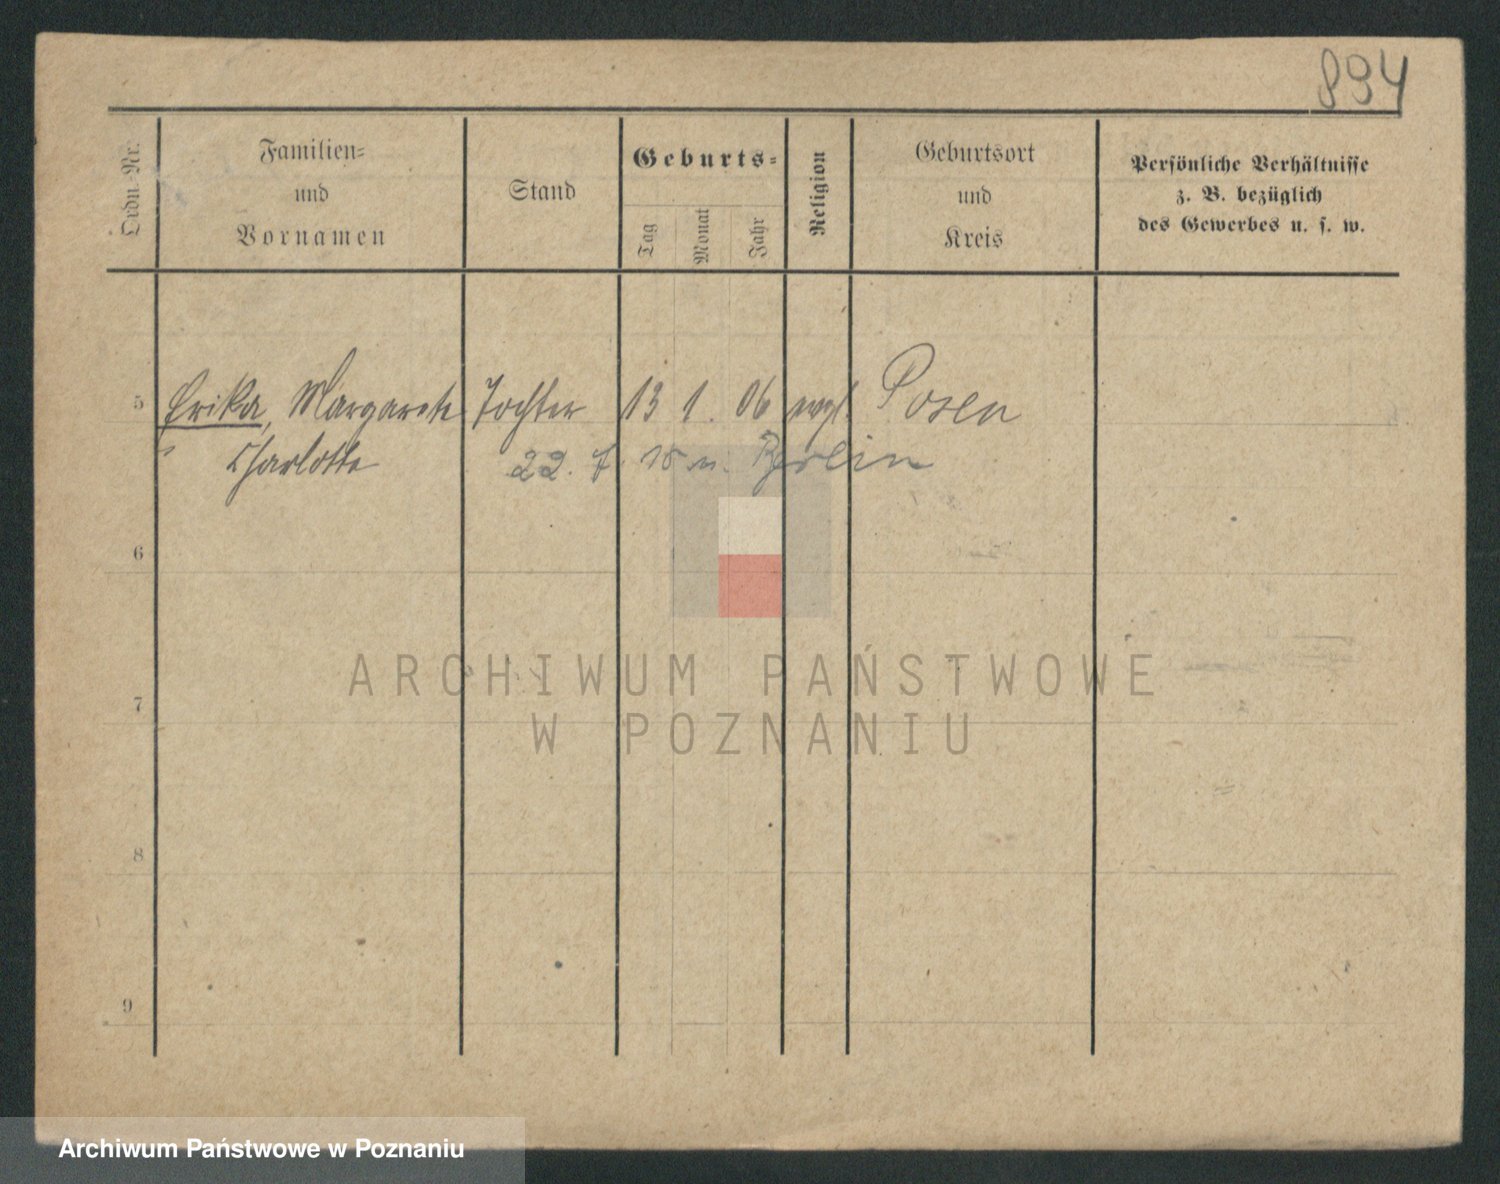 894
Ordn.-Nr.
Familien-
und
Vornamen
Stand
Geburts-
Tag
Monat
Jahr
Religion
Geburtsort
und
Kreis
Persönliche Verhältnisse
z. B. bezüglich
des Gewerbes u. s. w.
5 Erika, Margarete Tochter 13 1. 06 evgl. Posen
Charlotte 22. 7. 15 n. Berlin
6
7
8
9
ARCHIWUM PAŃSTWOWE
W POZNANIU
Archiwum Państwowe w Poznaniu